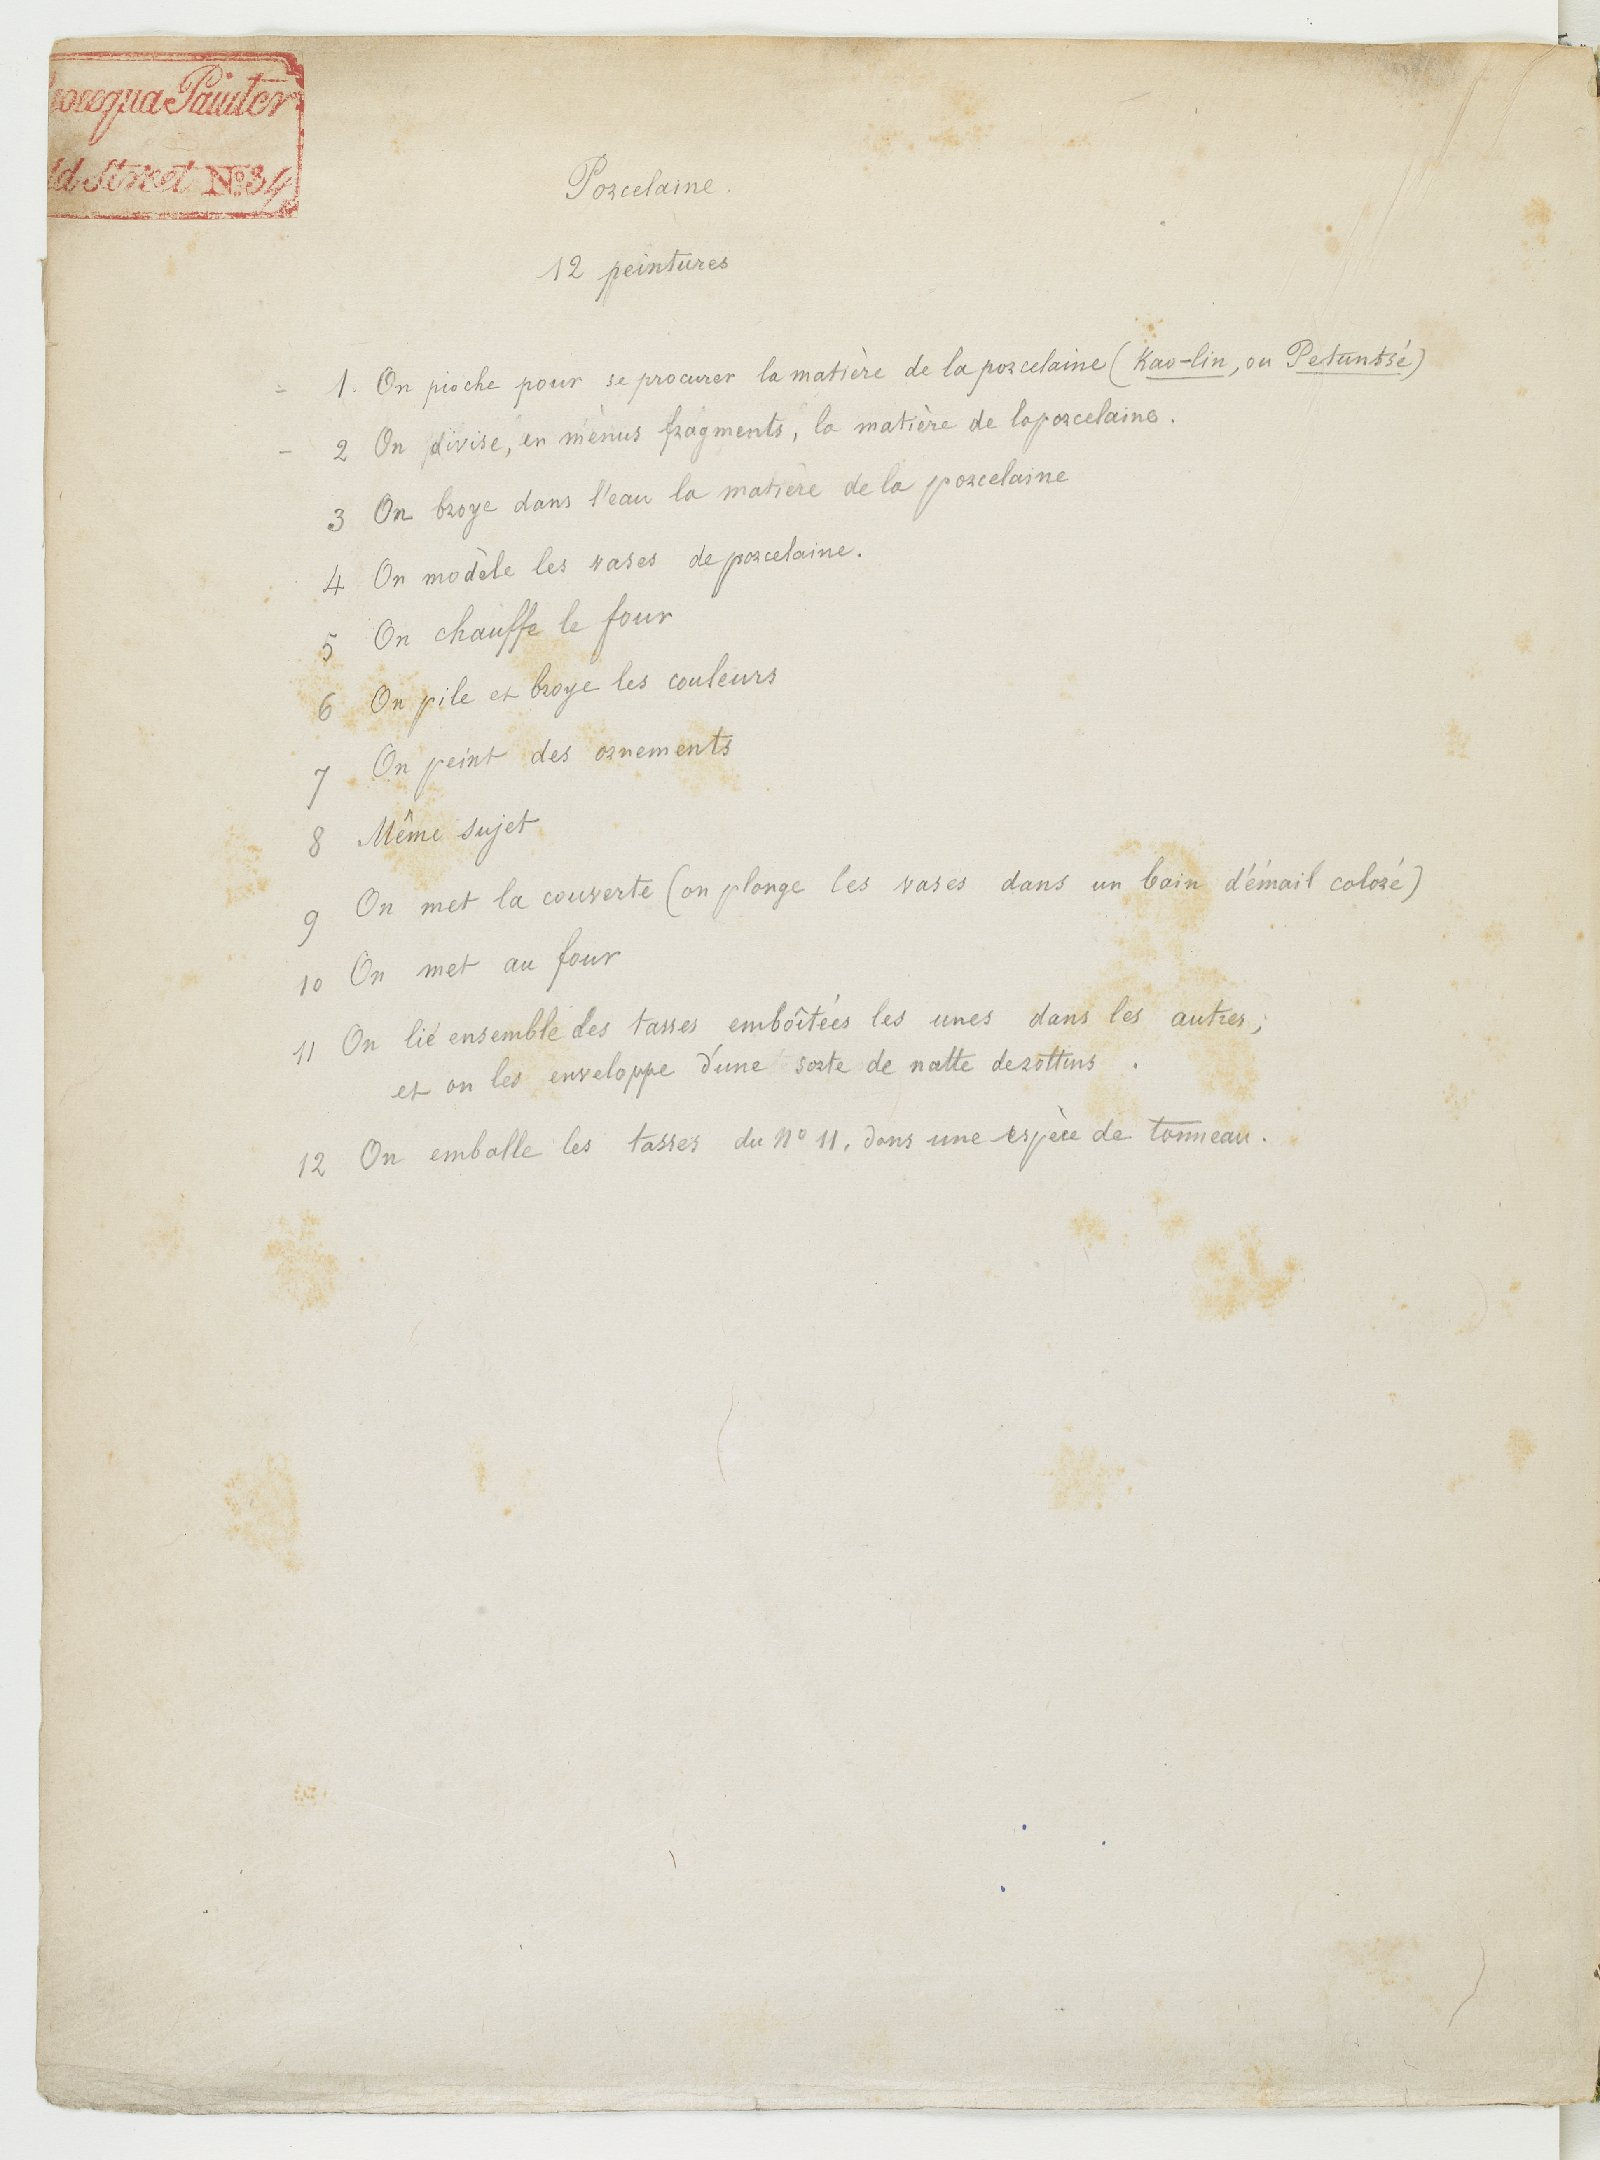 Painter
Street No. 34
Porcelaine.
12 peintures
- 1. On pioche pour se procurer la matière de la porcelaine (Kao-lin, ou Petuntsé)
- 2 On divise, en mènus fragments, la matière de la porcelaine.
3 On broye dans l'eau la matière de la porcelaine
4 On modèle les vases de porcelaine.
5 On chauffe le four
6 On pile et broye les couleurs
7 On peint des ornements
8 Même sujet
9 On met la couverte (on plonge les vases dans un bain d'émail coloré)
10 On met au four
11 On lie ensemble des tasses emboîtées les unes dans les autres;
et on les enveloppe d'une sorte de natte de rottins.
12 On emballe les tasses du No 11. dans une espèce de tonneau.